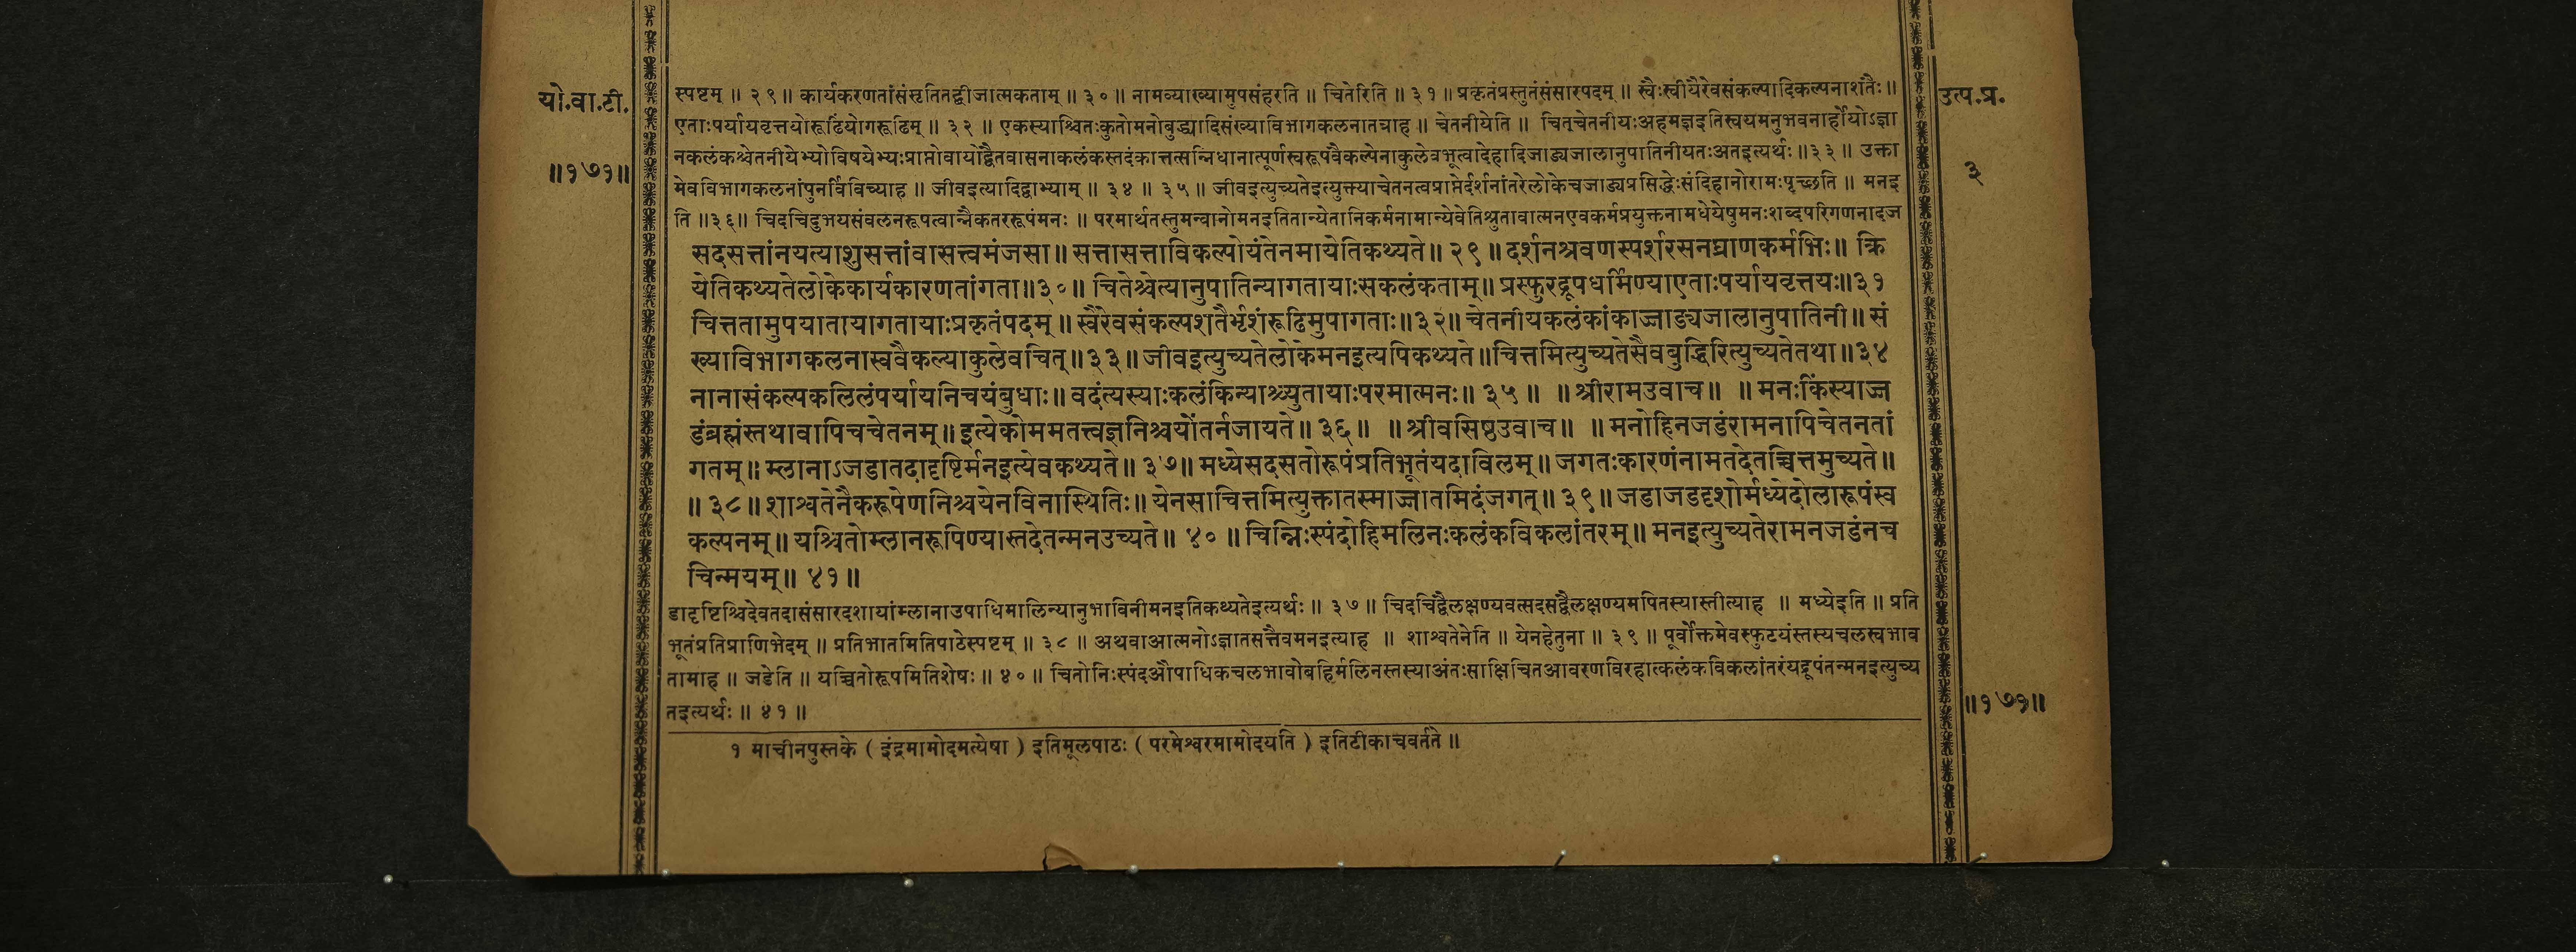 यो.वा.टी.
॥१७१॥
स्पष्टम् ॥ २९ ॥ कार्यकरणतांसंसृतितद्बीजात्मकताम् ॥ ३० ॥ नामव्याख्यामुपसंहरति ॥ चितेरिति ॥ ३१ ॥ प्रकृतंप्रस्तुतंसंसारपदम् ॥ स्वैःस्वीयैरेवसंकल्पादिकल्पनाशतैः ॥
एताःपर्यायवृत्तयोरूढिंयोगरूढिम् ॥ ३२ ॥ एकस्याश्चितःकुतोमनोबुद्ध्यादिसंख्याविभागकलनातत्राह ॥ चेतनीयेति ॥ चित्चेतनीयःअहमज्ञइतिस्वयमनुभवनार्होयोऽज्ञा
नकलंकश्चेतनीयेभ्योविषयेभ्यःप्राप्तोवायोद्वैतवासनाकलंकस्तदंकात्तत्सन्निधानात्पूर्णस्वरूपवैकल्येनाकुलेवभूत्वादेहादिजाड्यजालानुपातिनीयतःअतइत्यर्थः ॥३३॥ उक्ता
मेवविभागकलनांपुनर्विविच्याह ॥ जीवइत्यादिद्वाभ्याम् ॥ ३४ ॥ ३५ ॥ जीवइत्युच्यतेइत्युक्त्याचेतनत्वप्राप्तेर्दर्शनांतरेलोकेचजाड्यप्रसिद्धेःसंदिहानोरामःपृच्छति ॥ मनइ
ति ॥३६॥ चिदचिदुभयसंवलनरूपत्वान्नैकतररूपंमनः ॥ परमार्थतस्तुमन्वानोमनइतितान्येतानिकर्मनामान्येवेतिश्रुतावात्मनएवकर्मप्रयुक्तनामधेयेषुमनःशब्दपरिगणनादज
सदसत्तांनयत्याशुसत्तांवासत्त्वमंजसा ॥ सत्तासत्ताविकल्पोयंतेनमायेतिकथ्यते ॥ २९ ॥ दर्शनश्रवणस्पर्शरसनघ्राणकर्मभिः ॥ क्रि
येतिकथ्यतेलोकेकार्यकारणतांगता ॥३०॥ चितेश्चेत्यानुपातिन्यागतायाःसकलंकताम् ॥ प्रस्फुरद्रूपधर्मिण्याएताःपर्यायवृत्तयः ॥३१
चित्ततामुपयातायागतायाःप्रकृतंपदम् ॥ स्वैरेवसंकल्पशतैर्भृशंरूढिमुपागताः ॥३२॥ चेतनीयकलंकांकाज्जाड्यजालानुपातिनी ॥ सं
ख्याविभागकलनास्ववैकल्याकुलेवचित् ॥ ३३ ॥ जीवइत्युच्यतेलोकेमनइत्यपिकथ्यते ॥ चित्तमित्युच्यतेसैवबुद्धिरित्युच्यतेतथा ॥३४
नानासंकल्पकलिलंपर्यायनिचयंबुधाः ॥ वदंत्यस्याःकलंकिन्याश्च्युतायाःपरमात्मनः ॥ ३५ ॥ ॥ श्रीरामउवाच ॥ ॥ मनःकिंस्याज्ज
डंब्रह्मंस्तथावापिचचेतनम् ॥ इत्येकोममतत्त्वज्ञनिश्चयोंतर्नजायते ॥ ३६ ॥ ॥ श्रीवसिष्ठउवाच ॥ ॥ मनोहिनजडंरामनापिचेतनतां
गतम् ॥ म्लानाऽजडातदादृष्टिर्मनइत्येवकथ्यते ॥ ३७ ॥ मध्येसदसतोरूपंप्रतिभूतंयदाविलम् ॥ जगतःकारणंनामतदेतच्चित्तमुच्यते ॥
॥ ३८ ॥ शाश्वतेनैकरूपेणनिश्चयेनविनास्थितिः ॥ येनसाचित्तमित्युक्तातस्माज्जातमिदंजगत् ॥ ३९ ॥ जडाजडदृशोर्मध्येदोलारूपंस्व
कल्पनम् ॥ यश्चितोम्लानरूपिण्यास्तदेतन्मनउच्यते ॥ ४० ॥ चिन्निःस्पंदोहिमलिनःकलंकविकलांतरम् ॥ मनइत्युच्यतेरामनजडंनच
चिन्मयम् ॥ ४१ ॥
डादृष्टिश्चिदेवतदासंसारदशायांम्लानाउपाधिमालिन्यानुभाविनीमनइतिकथ्यतेइत्यर्थः ॥ ३७ ॥ चिदचिद्वैलक्षण्यवत्सदसद्वैलक्षण्यमपितस्यास्तीत्याह ॥ मध्येइति ॥ प्रति
भूतंप्रतिप्राणिभेदम् ॥ प्रतिभातमितिपाठेस्पष्टम् ॥ ३८ ॥ अथवाआत्मनोऽज्ञातसत्तैवमनइत्याह ॥ शाश्वतेनेति ॥ येनहेतुना ॥ ३९ ॥ पूर्वोक्तमेवस्फुटयंस्तस्यचलस्वभाव
तामाह ॥ जडेति ॥ यच्चितोरूपमितिशेषः ॥ ४० ॥ चितोनिःस्पंदऔपाधिकचलभावोबहिर्मलिनस्तस्याअंतःसाक्षिचितआवरणविरहात्कलंकविकलांतरंयद्रूपंतन्मनइत्युच्य
तइत्यर्थः ॥ ४१ ॥
१ माचीनपुस्तके ( इंद्रमामोदमत्येषा ) इतिमूलपाठः ( परमेश्वरमामोदयति ) इतिटीकाचवर्तते ॥
उत्प.प्र.
३
॥१७१॥